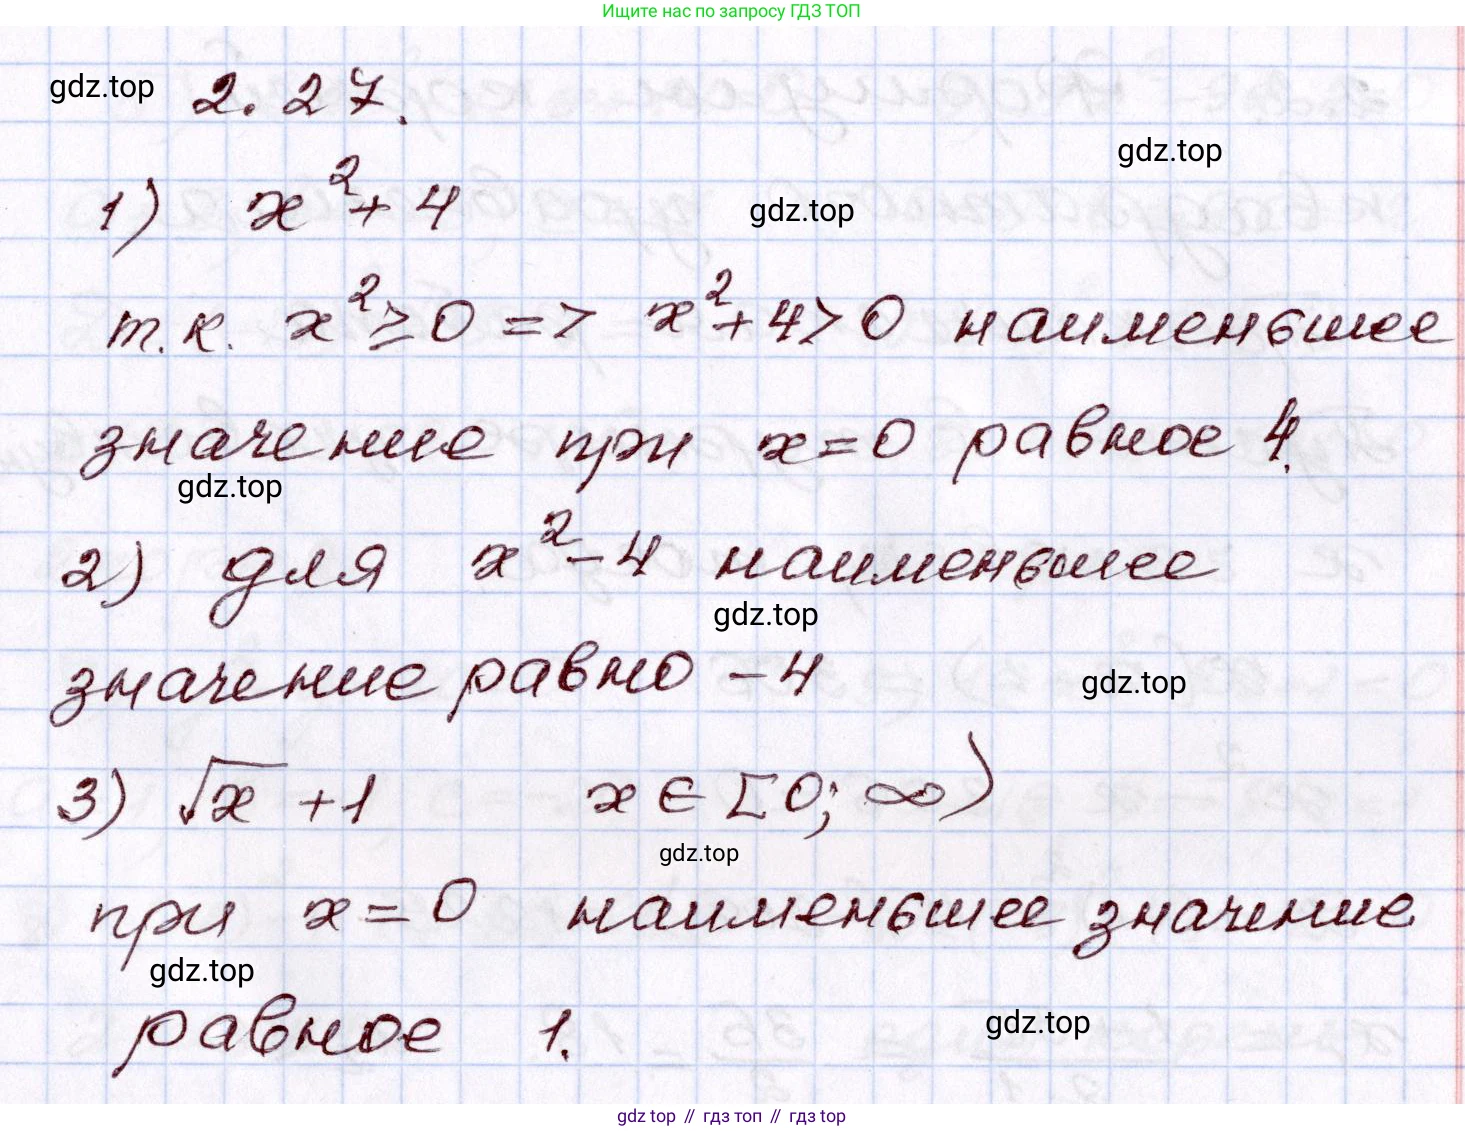 Ищите нас по запросу ГДЗ ТОП
gdz.top 2.27.
gdz.top
1) x²+4 gdz.top
т.к. x²≥0 => x²+4>0 наименьшее
значение при x=0 равное 4.
gdz.top
2) для x²-4 наименьшее
gdz.top
значение равно -4 gdz.top
3) √x +1 x∈[0;∞)
gdz.top
при x=0 наименьшее значение
gdz.top
равное 1. gdz.top
gdz top // гдз топ // gdz top